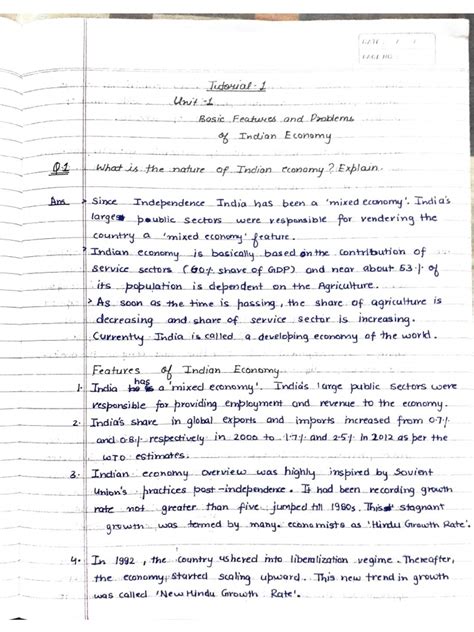 DATE: / /
PAGE NO.
Tutorial-1
Unit-1
Basic Features and Problems
of Indian Economy
Q.1 What is the nature of Indian economy? Explain.
Ans > Since Independence India has been a 'mixed economy'. India's
large public sectors were responsible for rendering the
country a 'mixed economy' feature.
> Indian economy is basically based on the contribution of
service sectors (60% share of GDP) and near about 53% of
its population is dependent on the Agriculture.
> As soon as the time is passing, the share of agriculture is
decreasing and share of service sector is increasing.
Currently India is called a developing economy of the world.
Features of Indian Economy
1. India has a 'mixed economy'. India's large public sectors were
responsible for providing employment and revenue to the economy.
2. India's share in global exports and imports increased from 0.7%
and 0.8% respectively in 2000 to 1.7% and 2.5% in 2012 as per the
WTO estimates.
3. Indian economy overview was highly inspired by Sovient
Union's practices post-independence. It had been recording growth
rate not greater than five jumped till 1980s. This stagnant
growth was termed by many economists as 'Hindu Growth Rate'.
4. In 1992, the Country ushered into liberalization regime. Thereafter,
the economy started scaling upward. This new trend in growth
was called 'New Hindu Growth Rate'.